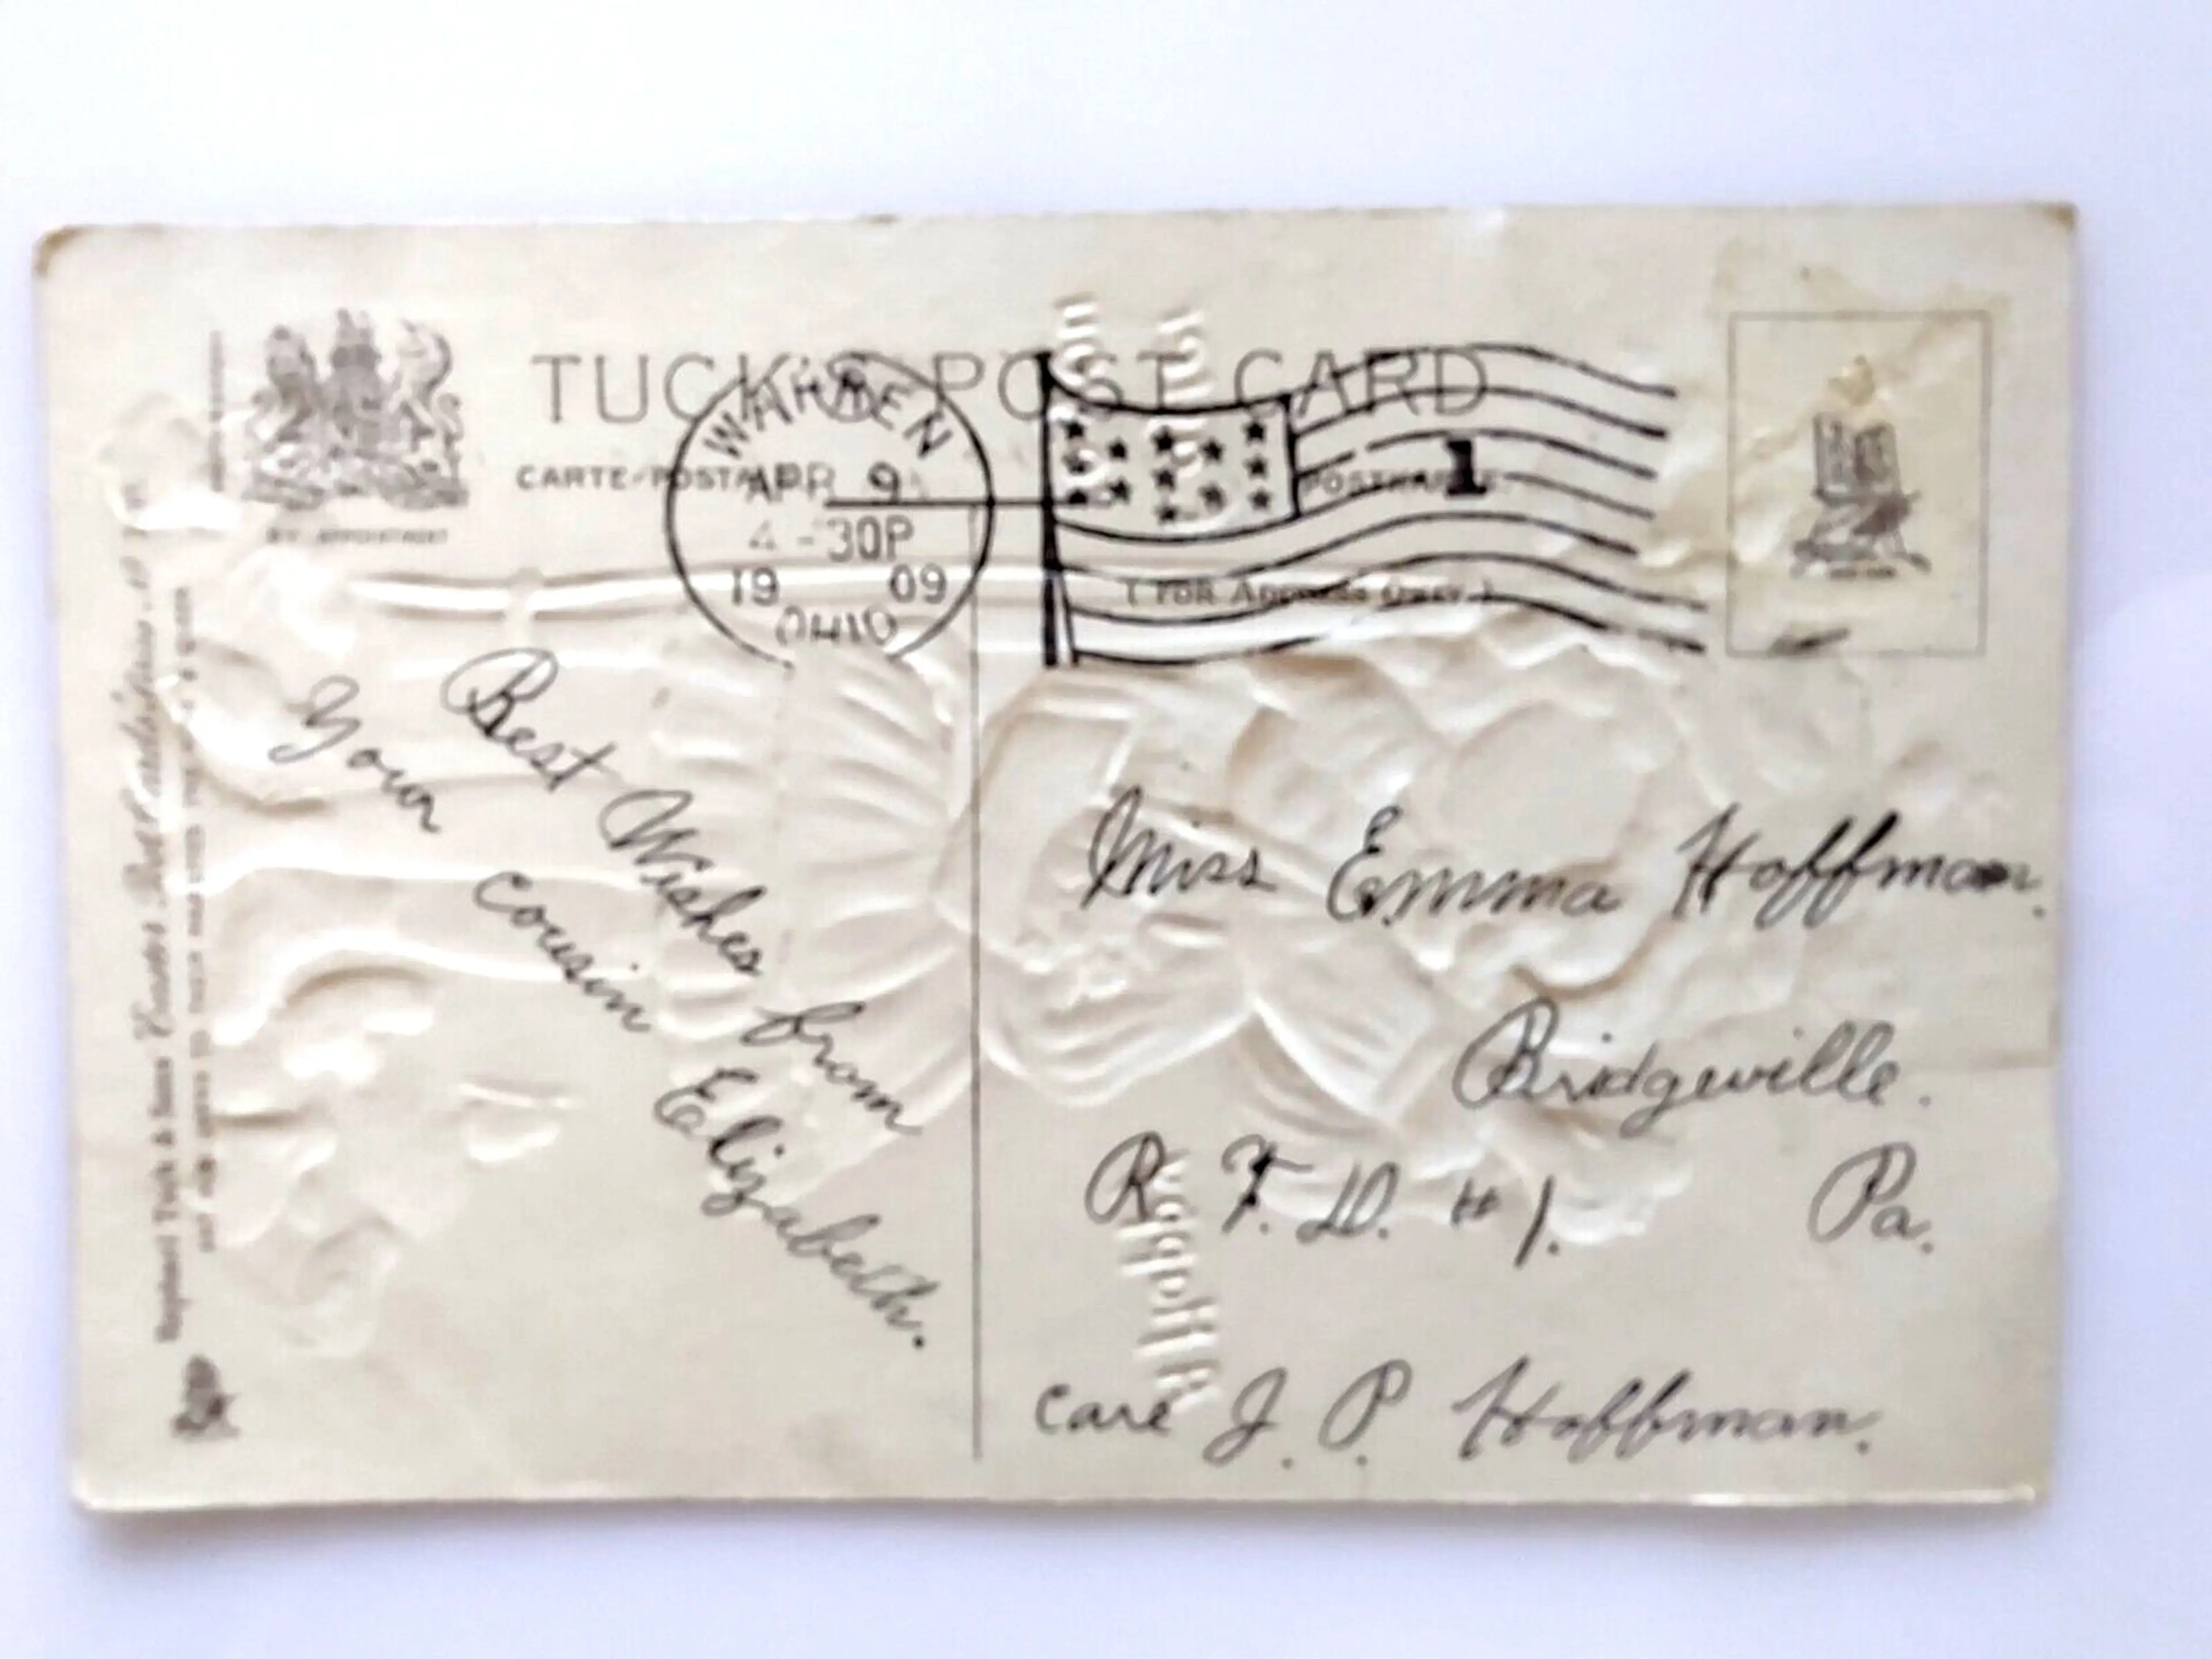 TUCK'S POST CARD
CARTE POSTALE POSTKARTE
BY APPOINTMENT
WARREN
APR 9
4-30P
19 09
OHIO
1
(FOR ADDRESS ONLY.)
Best Wishes from
Your cousin Elizabeth.
Miss Emma Hoffman.
Bridgeville.
R. F. D. #1. Pa.
care J. P. Hoffman.
Raphael Tuck & Sons